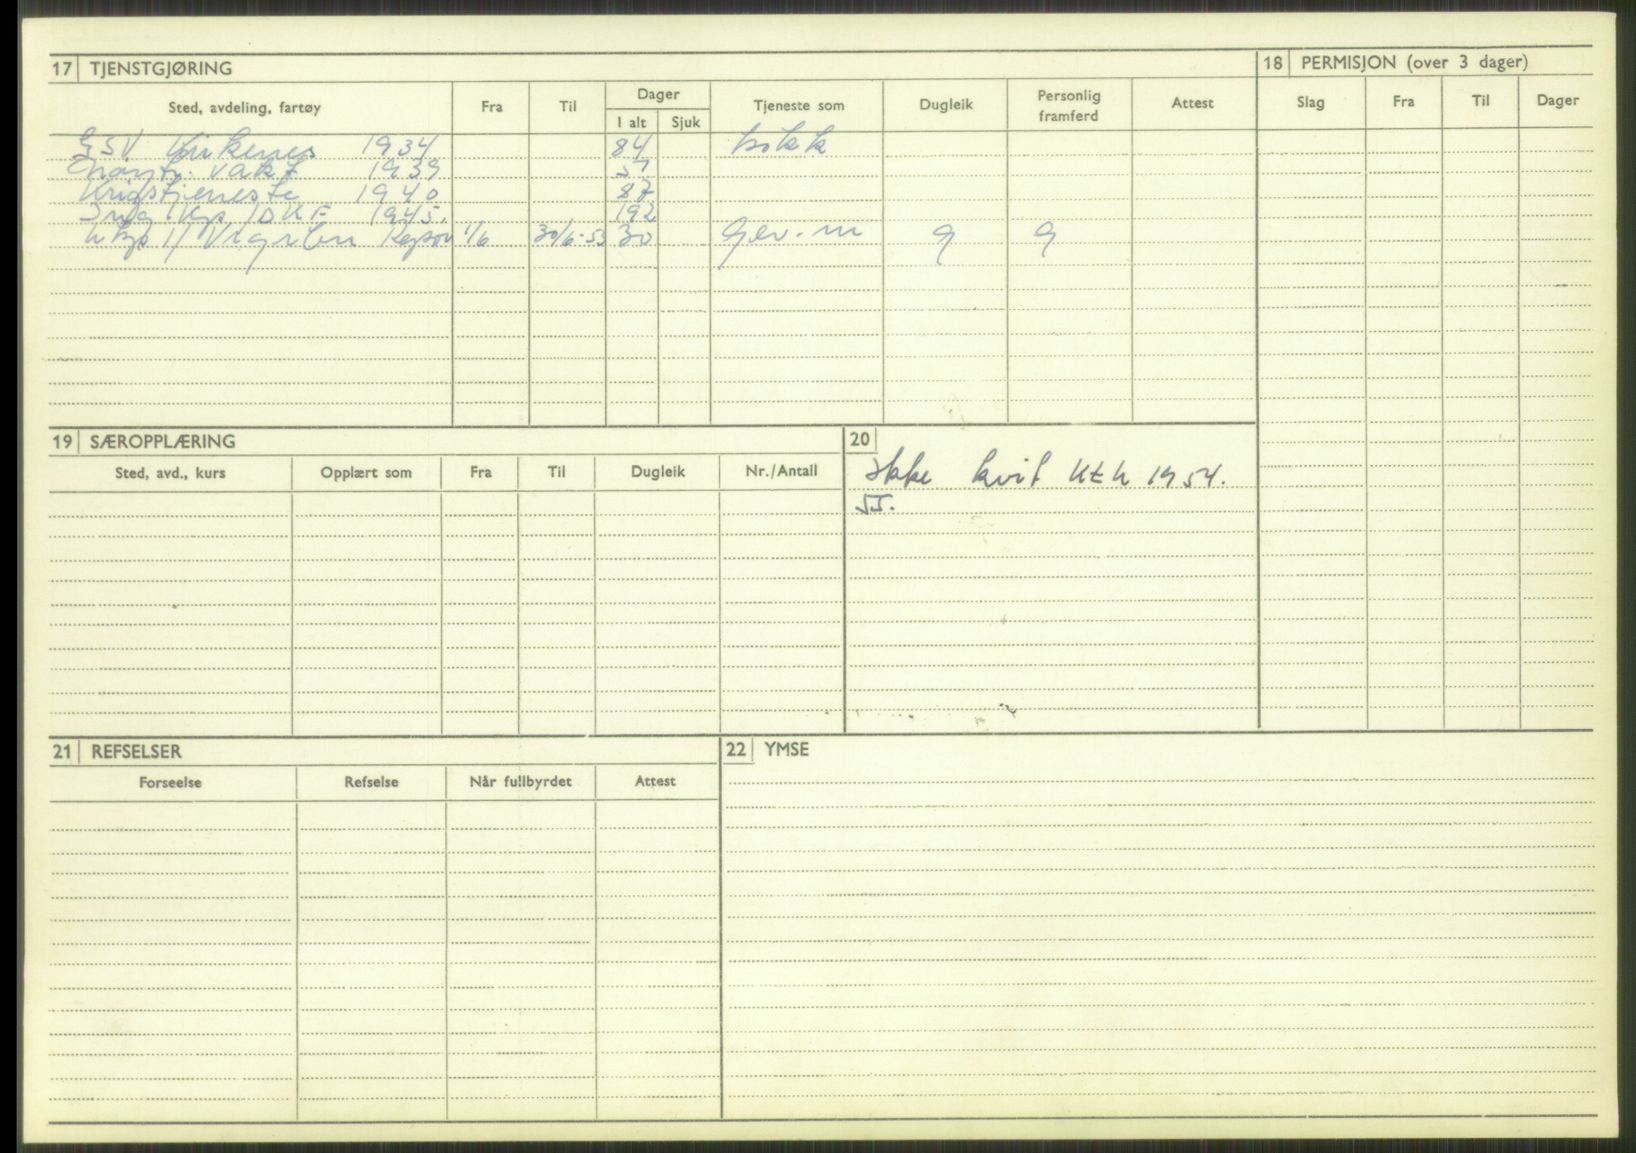 17 TJENSTGJØRING
Sted, avdeling, fartøy Fra Til Dager Tjeneste som Dugleik Personlig framferd Attest
I alt Sjuk
GSV Kirkenes 1934 84 kokk
Nøytr. vakt 1939 57
Krigstjeneste 1940 87
1945. 192
1/6 30/6-53 30 Gev.m g g
18 PERMISJON (over 3 dager)
Slag Fra Til Dager
19 SÆROPPLÆRING
Sted, avd., kurs Opplært som Fra Til Dugleik Nr./Antall
20
Ikke kvit 1954.
55.
21 REFSELSER
Forseelse Refselse Når fullbyrdet Attest
22 YMSE